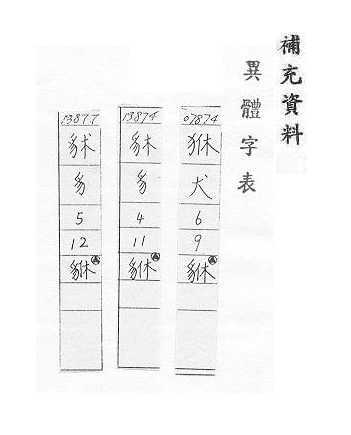 補充資料
異體字表
07874
犬
6
9
貅
13874
豸
4
11
貅
13877
豸
5
12
貅